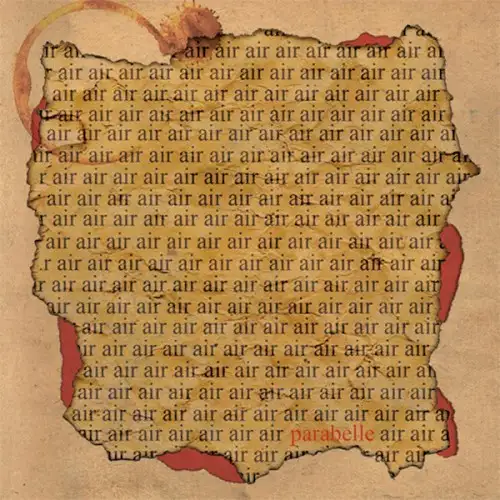 ir a air air air air air air air air a
air air air air air air air air air air air air air a
air air air air air air air air air air air air air ai
air air air air air air air air air air air air air air
air air air air air air air air air air air air air air
ir air air air air air air air air air air air air air
r air air air air air air air air air air air air air a
air air air air air air air air air air air air air air
air air air air air air air air air air air air air air
air air air air air air air air air air air air air a
r air air air air air air air air air air air air air
r air air air air air air air air air air air air air
air air air air air air air air air air air air air
air air air air air air air air air air air air
air air air air air air air air air air air air
air air air air air air air air air air air air
air air air air air air air air air air air air
air air air air air air air air air air air air a
air air air air air air air parabelle air air a
air air air air air air air air air air air